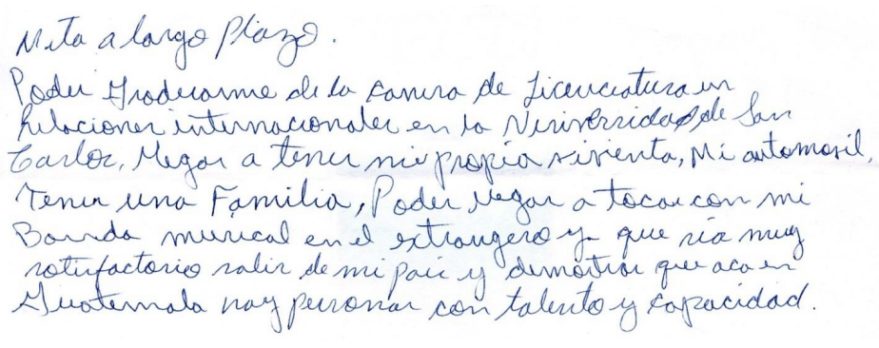 Meta a largo Plazo.
Poder Graduarme de la carrera de Licenciatura en
Relaciones internacionales en la Neriversidad de San
Carlos, llegar a tener mi propia vivienta, Mi automovil,
Tener una Familia, Poder llegar a tocar con mi
Banda musical en el extrangero y que sea muy
satisfactorio salir de mi pais y demostrar que aca en
Guatemala hay personas con talento y capacidad.